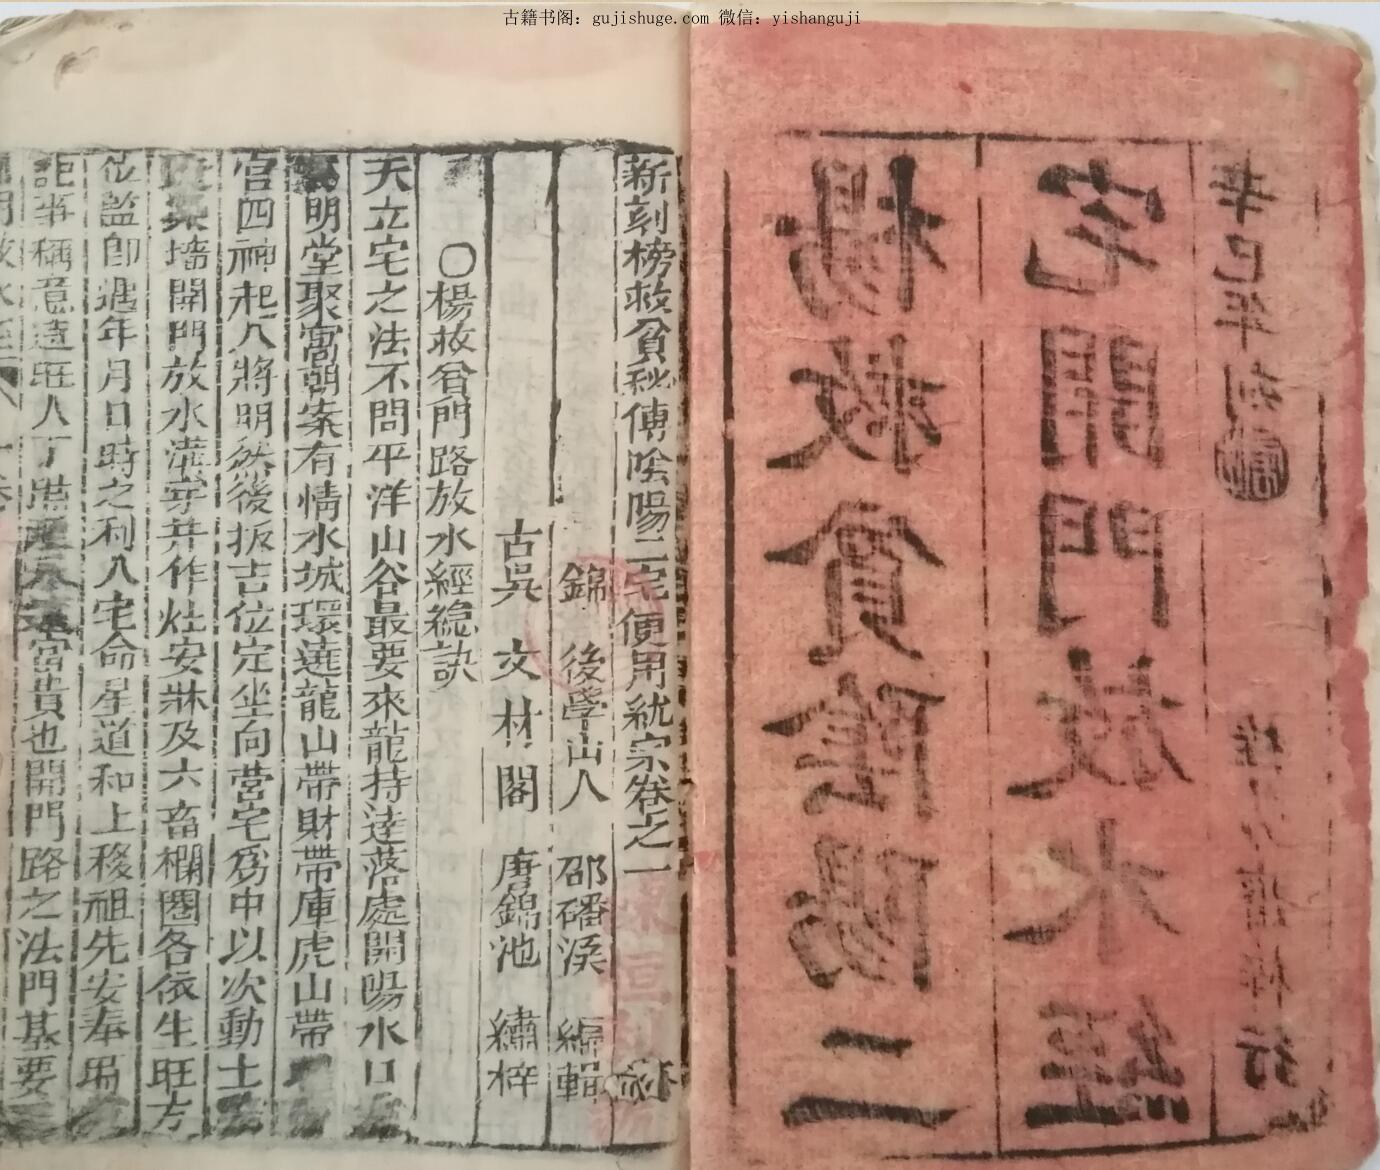 古籍书阁：gujishuge.com 微信：yishanguji
辛巳年刻
楊救貧陰陽二
宅開門放水經
行
新刻楊救貧秘傳陰陽二宅便用統宗卷之一
錦 後學山人 邵磻溪 編輯
古吳 文林閣 唐錦池 繡梓
〇楊救貧門路放水經總訣
夫立宅之法不問平洋山谷最要來龍持達落處開陽水口
明堂聚窩朝案有情水城環遶龍山帶財帶庫虎山帶
官四神起八將明然後扳吉位定坐向營宅爲中以次動土
墻開門放水溝穿井作灶安牀及六畜欄圈各依生旺方
位監卽遇年月日時之利八宅命星道和上移祖先安奉
訖事稱意造旺人丁 富貴也開門路之法門基要